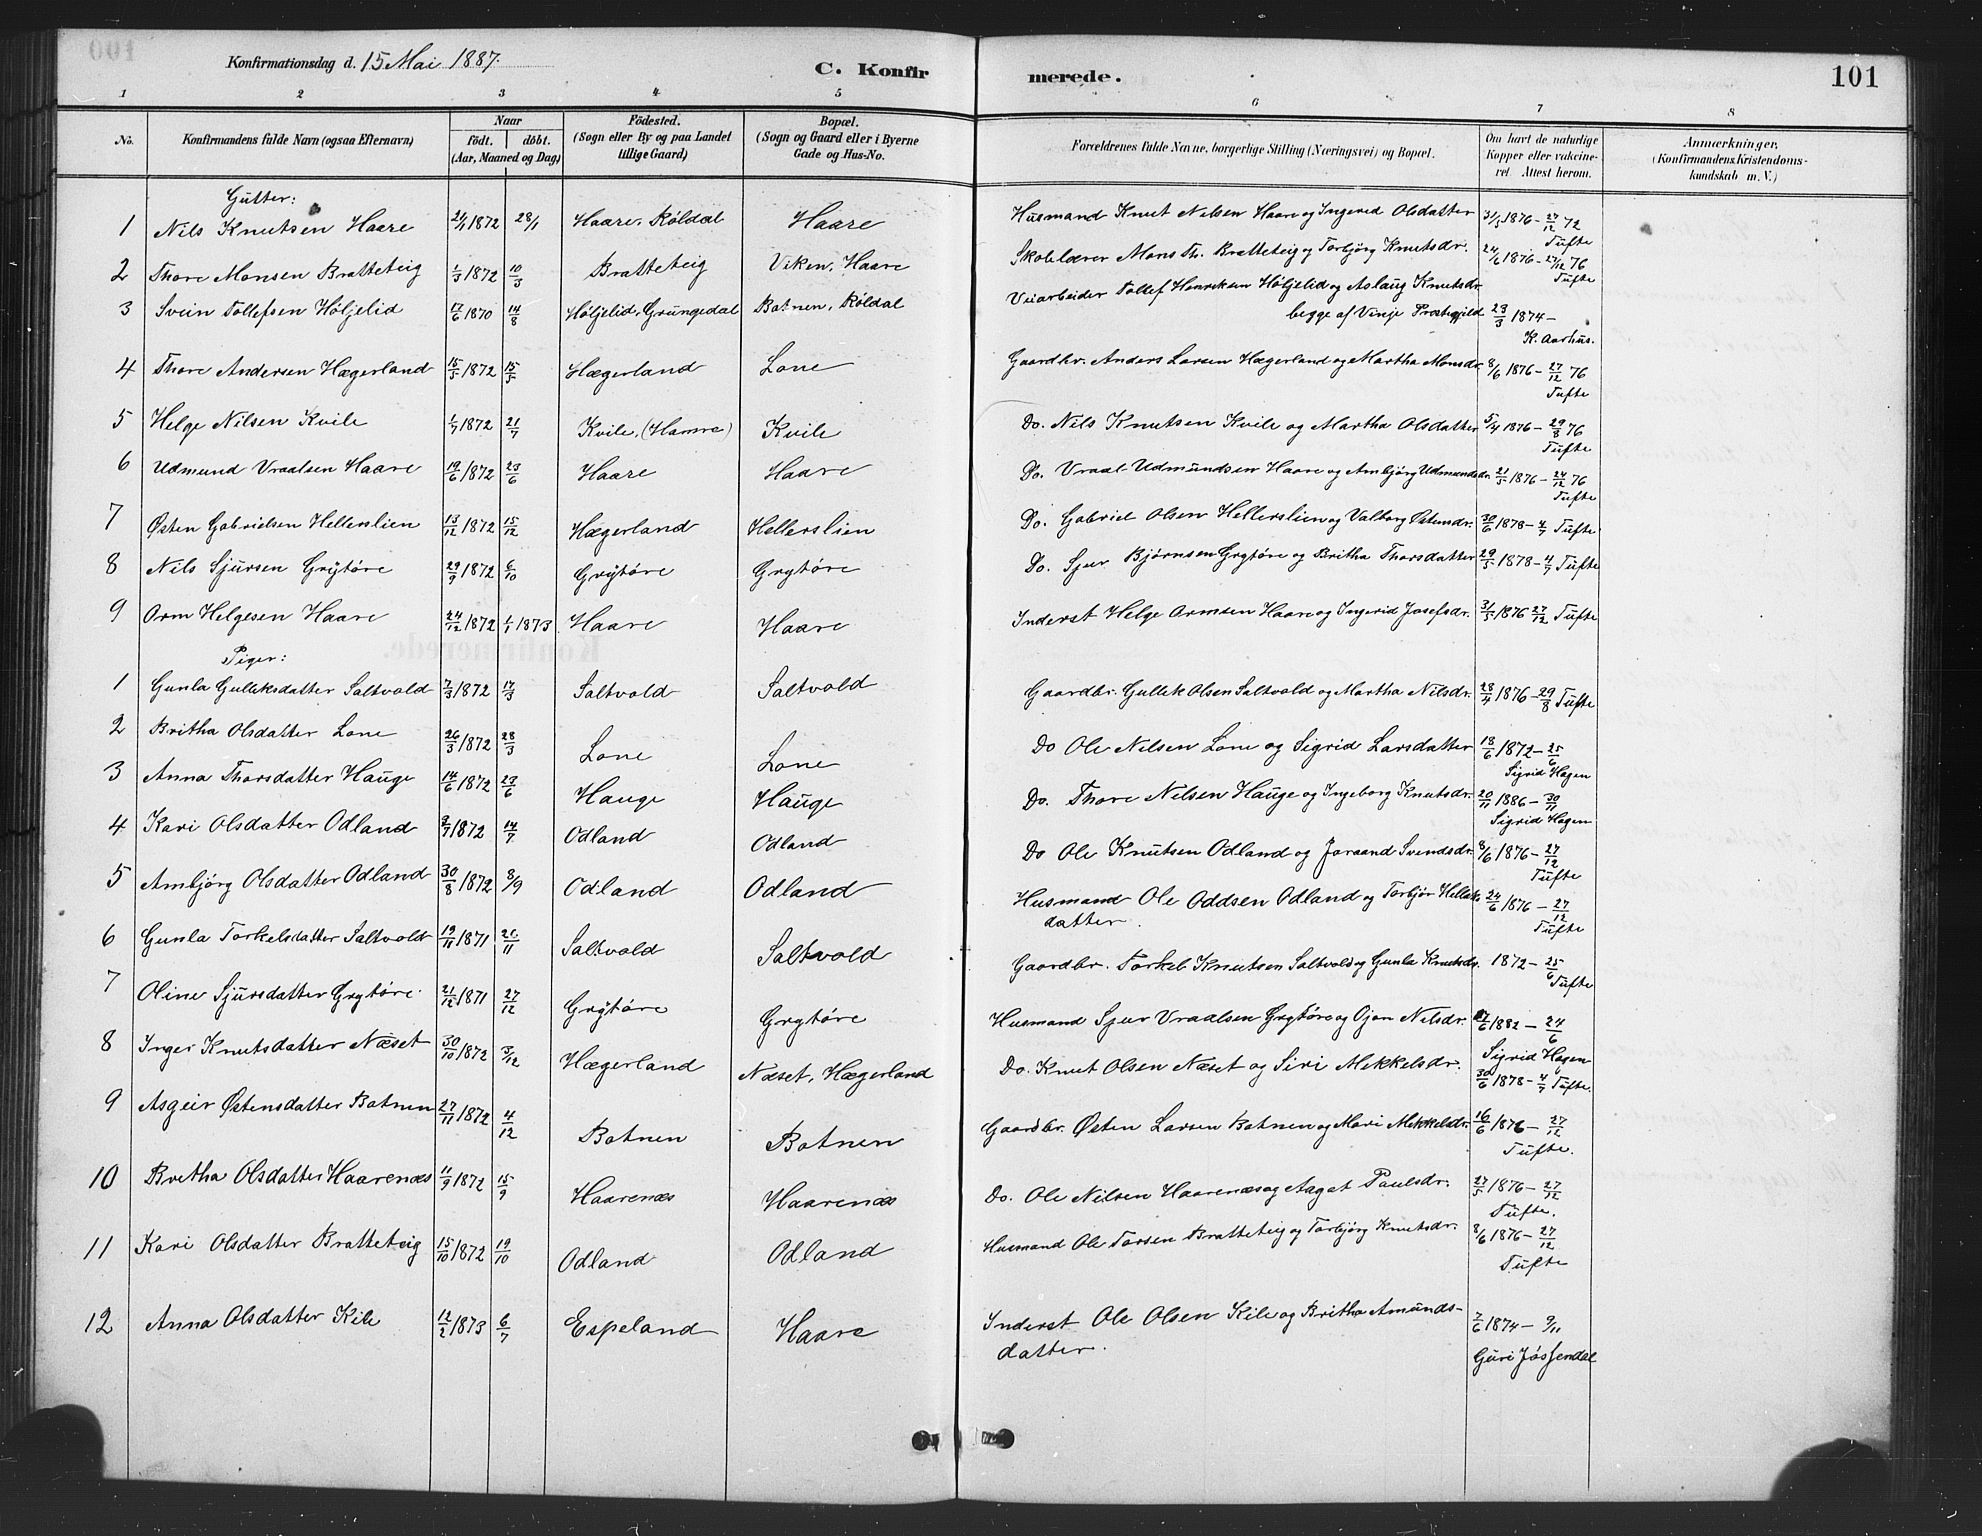 Konfirmationsdag d. 15 Mai 1887.
C. Konfirmerede.
101
1 2 3 4 5 6 7 8
No.
Konfirmandens fulde Navn (ogsaa Efternavn)
Naar
födt. döbt.
(Aar, Maaned og Dag)
Födested.
(Sogn eller By og paa Landet
tillige Gaard)
Bopæl.
(Sogn og Gaard eller i Byerne
Gade og Hus-No.
Forældrenes fulde Navne, borgerlige Stilling (Næringsvei) og Bopæl.
Om havt de naturlige
Kopper eller vakcine-
ret. Attest herom.
Anmærkninger,
(Konfirmandens Kristendoms-
kundskab m. V.)
Gutter:
1 Nils Knutsen Haare 21/1 1872 28/1 Haare, Röldal Haare Husmand Knut Nilsen Haare og Ingerid Olsdatter 31/5 1876 - 27/12 72 Tufte
2 Thore Monsen Bratteteig 1/3 1872 10/3 Bratteteig Viken, Haare Skolelærer Mons Th. Bratteteig og Torbjörg Knutsdr. 24/6 1876 - 27/12 76 Tufte
3 Svein Tollefsen Höljelid 17/6 1870 14/8 Höljelid, Grungedal Botnen, Röldal Veiarbeider Tollef Henriksen Höljelid og Aslaug Knutsdr
begge af Vinje Prestegjeld 23/3 1874 - K. Aarhus.
4 Thore Andersen Hægerland 15/5 1872 15/5 Hægerland Lone Gaardbr. Anders Larsen Hægerland og Martha Monsdr. 8/6 1876 - 27/12 76 Tufte
5 Helge Nilsen Kvile 1/7 1872 21/7 Kvile, (Hamre) Kvile Do. Nils Knutsen Kvile og Martha Olsdatter 5/4 1876 - 29/8 76 Tufte
6 Udmund Vraalsen Haare 19/6 1872 23/6 Haare Haare Do. Vraal Udmundsen Haare og Ambjörg Udmundsdr. 21/5 1876 - 24/12 76 Tufte
7 Østen Gabrielsen Hellerslien 13/12 1872 15/12 Hægerland Hellerslien Do. Gabriel Olsen Hellerslien og Valborg Østensdr. 30/6 1878 - 4/7 Tufte
8 Nils Sjursen Grytöre 29/9 1872 6/10 Grytöre Grytöre Do. Sjur Bjørnsen Grytöre og Britha Thorsdatter 29/5 1878 - 4/7 Tufte
9 Orm Helgesen Haare 24/12 1872 1/1 1873 Haare Haare Inderst Helge Ormsen Haare og Ingerid Josefsdr. 31/5 1876 27/12 Tufte
Piger:
1 Gunla Gulleksdatter Saltvold 7/3 1872 17/3 Saltvold Saltvold Gaardbr. Gullek Olsen Saltvold og Martha Nilsdr. 28/4 1876 - 29/8 Tufte
2 Britha Olsdatter Lone 26/3 1872 28/3 Lone Lone Do Ole Nilsen Lone og Sigrid Larsdatter 18/6 1872 - 25/6 Sigrid Hagen
3 Anna Thorsdatter Hauge 14/6 1872 23/6 Hauge Hauge Do. Thore Nilsen Hauge og Ingeborg Knutsdr. 20/11 1886 - 30/11 Sigrid Hagen
4 Kari Olsdatter Odland 2/7 1872 14/7 Odland Odland Do Ole Knutsen Odland og Joraand Svendsdr. 8/6 1876 - 27/12 Tufte
5 Ambjörg Olsdatter Odland 30/8 1872 8/9 Odland Odland Husmand Ole Oddsen Odland og Torbjör Helleks
datter. 24/6 1876 - 27/12 Tufte
6 Gunla Torkelsdatter Saltvold 19/11 1871 /11 Saltvold Saltvold Gaardbr. Torkel Knutsen Saltvold og Gunla Knutsdr. 1872 - 25/6 Tufte
7 Oline Sjursdatter Grytöre. 21/12 1871 27/12 Grytöre Grytöre Husmand Sjur Vraalsen Grytöre og Ojon Nilsdr. /6 1882 - 24/6 Sigrid Hagen
8 Inger Knutsdatter Næset 30/10 1872 3/12 Hægerland Næset, Hægerland Do. Knut Olsen Næset og Siri Mekkelsdr. 30/6 1878 - 4/7 Tufte.
9 Asgeir Østensdatter Botnen 27/11 1872 4/12 Botnen Botnen Gaardbr. Østen Larsen Botnen og Mari Mekkelsdr. 16/6 1876 - 27/12 Tufte.
10 Bretha Olsdatter Haarenæs 11/9 1872 15/9 Haarenæs Haarenæs Do. Ole Nilsen Haarenæs og Aagat Paulsdr. 27/5 1876 - 27/12 Tufte.
11 Kari Olsdatter Bratteteig 15/10 1872 19/10 Odland Odland Husmand Ole Torsen Bratteteig og Torbjörg Knutsdr. 8/6 1876 - 27/12 Tufte
12 Anna Olsdatter Kile 12/2 1873 6/7 Espeland Haare Inderst Ole Olsen Kile og Britha Amunds-
datter. 7/6 1874 - 9/11 Guri Jössendal